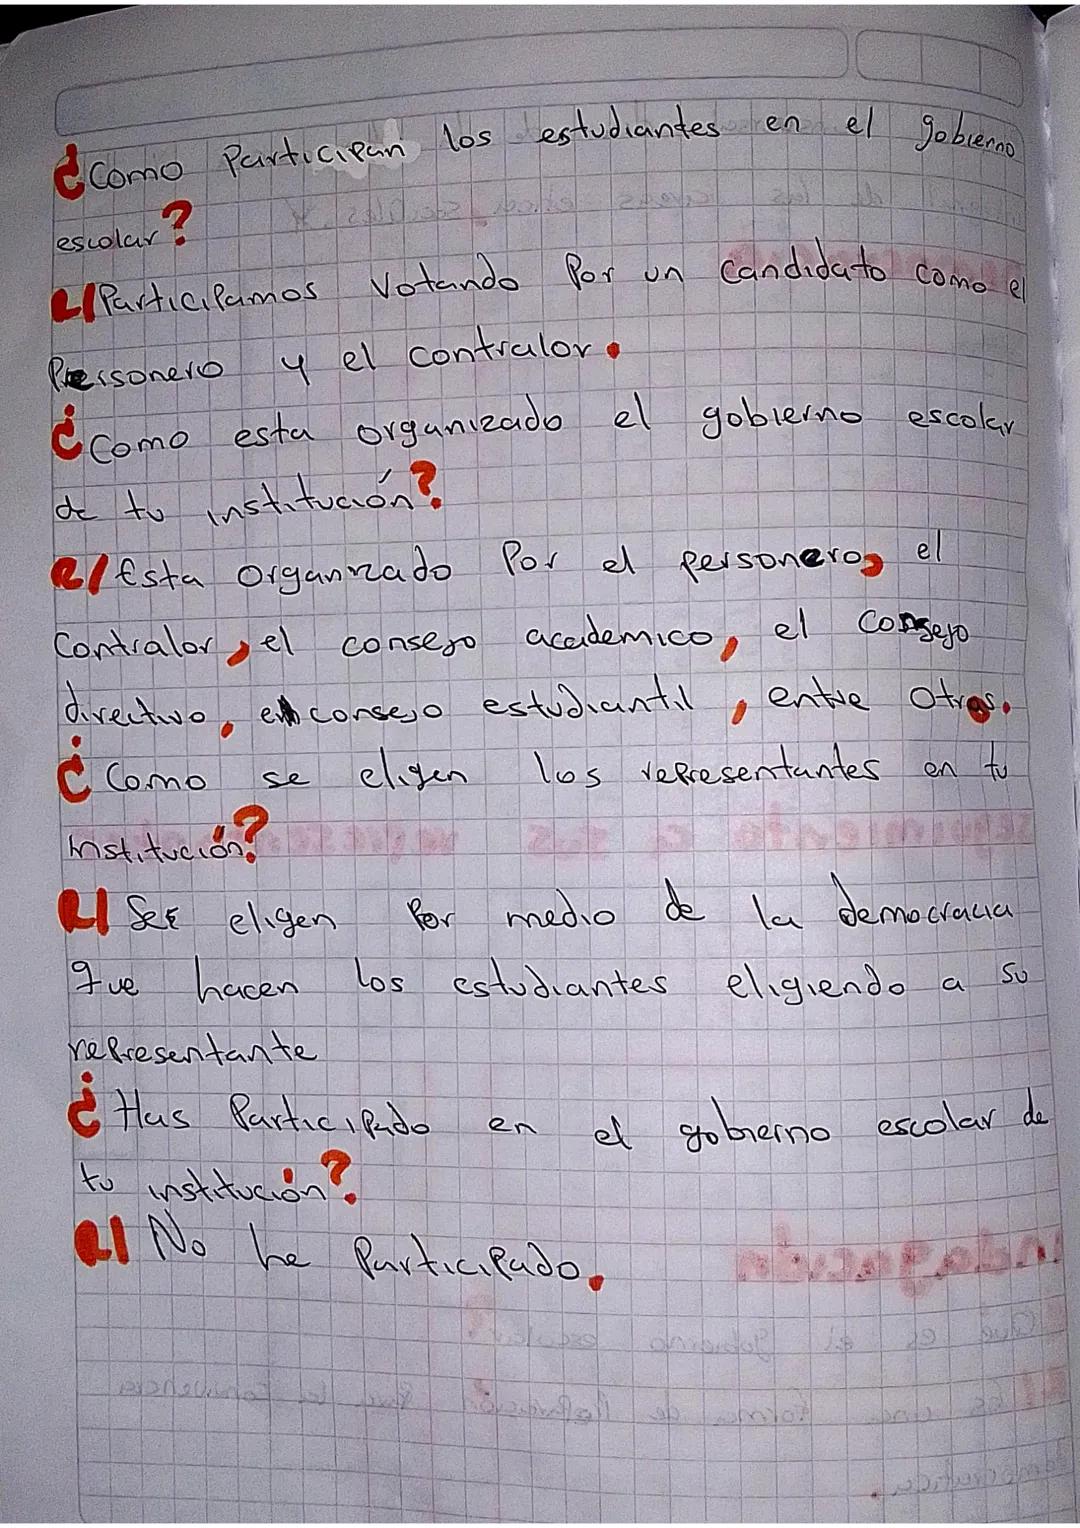 ¿Como Participan los estudiantes en el gobierno
escolar?
R/Participamos Votando Por un Candidato como el
Personero y el contralor.
¿Como esta organizado el gobierno escolar
de tu institución?
R/Esta organizado Por el personero, el
Contralor, el consejo academico, el Consejo
directivo, el consejo estudiantil, entre otros.
¿Como se eligen los representantes en tu
institución?
R/ Se eligen Por medio de la democracia
que hacen los estudiantes eligiendo a su
representante
¿Has Participado en el gobierno escolar de
tu institución?
R/ No he Participado.